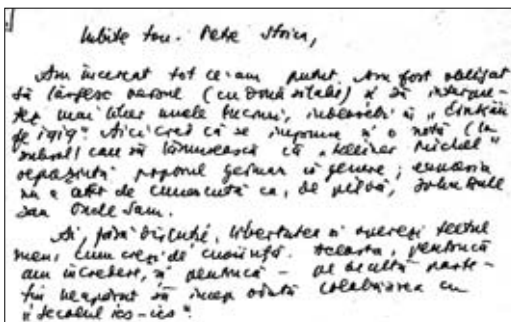 Iubite tov. Petre Stoica,
Am încercat tot ce-am putut. Am fost obligat
să lărgesc versul (cu două silabe) și să interpre-
tez mai liber unele lucruri, îndeosebi în „
de 1919”. Aici cred că se impune și o notă (la
subsol) care să lămurească că „kleiner Michel”
reprezintă poporul german în genere; expresia
nu e atât de cunoscută ca, de pildă, John Bull
sau Uncle Sam.
Ai, fără discuție, libertatea să operezi textul
meu, cum crezi de cuviință. Aceasta, pentrucă
am încredere, și pentrucă – pe de altă parte –
țin neapărat să încep odată colaborarea cu
„Secolul